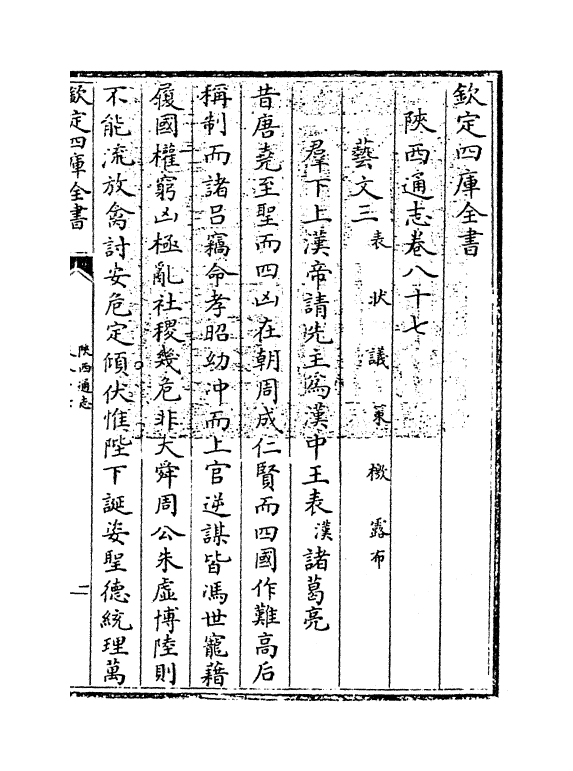 欽定四庫全書
陜西通志卷八十七
藝文三表 狀 議 䇿 檄 露布
羣下上漢帝請先主為漢中王表漢諸葛亮
昔唐堯至聖而四凶在朝周成仁賢而四國作難高后
稱制而諸呂竊命孝昭幼冲而上官逆謀皆馮世寵藉
履國權窮凶極亂社稷幾危非大舜周公朱虛博陸則
不能流放禽討安危定傾伏惟陛下誕姿聖德統理萬
欽定四庫全書
陜西通志
一